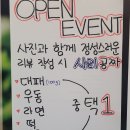 OPEN
EVENT
사진과 함께 정성스러운
리뷰 작성 시 사리 공짜
대패(100g)
우동
라면
떡
중 택 1